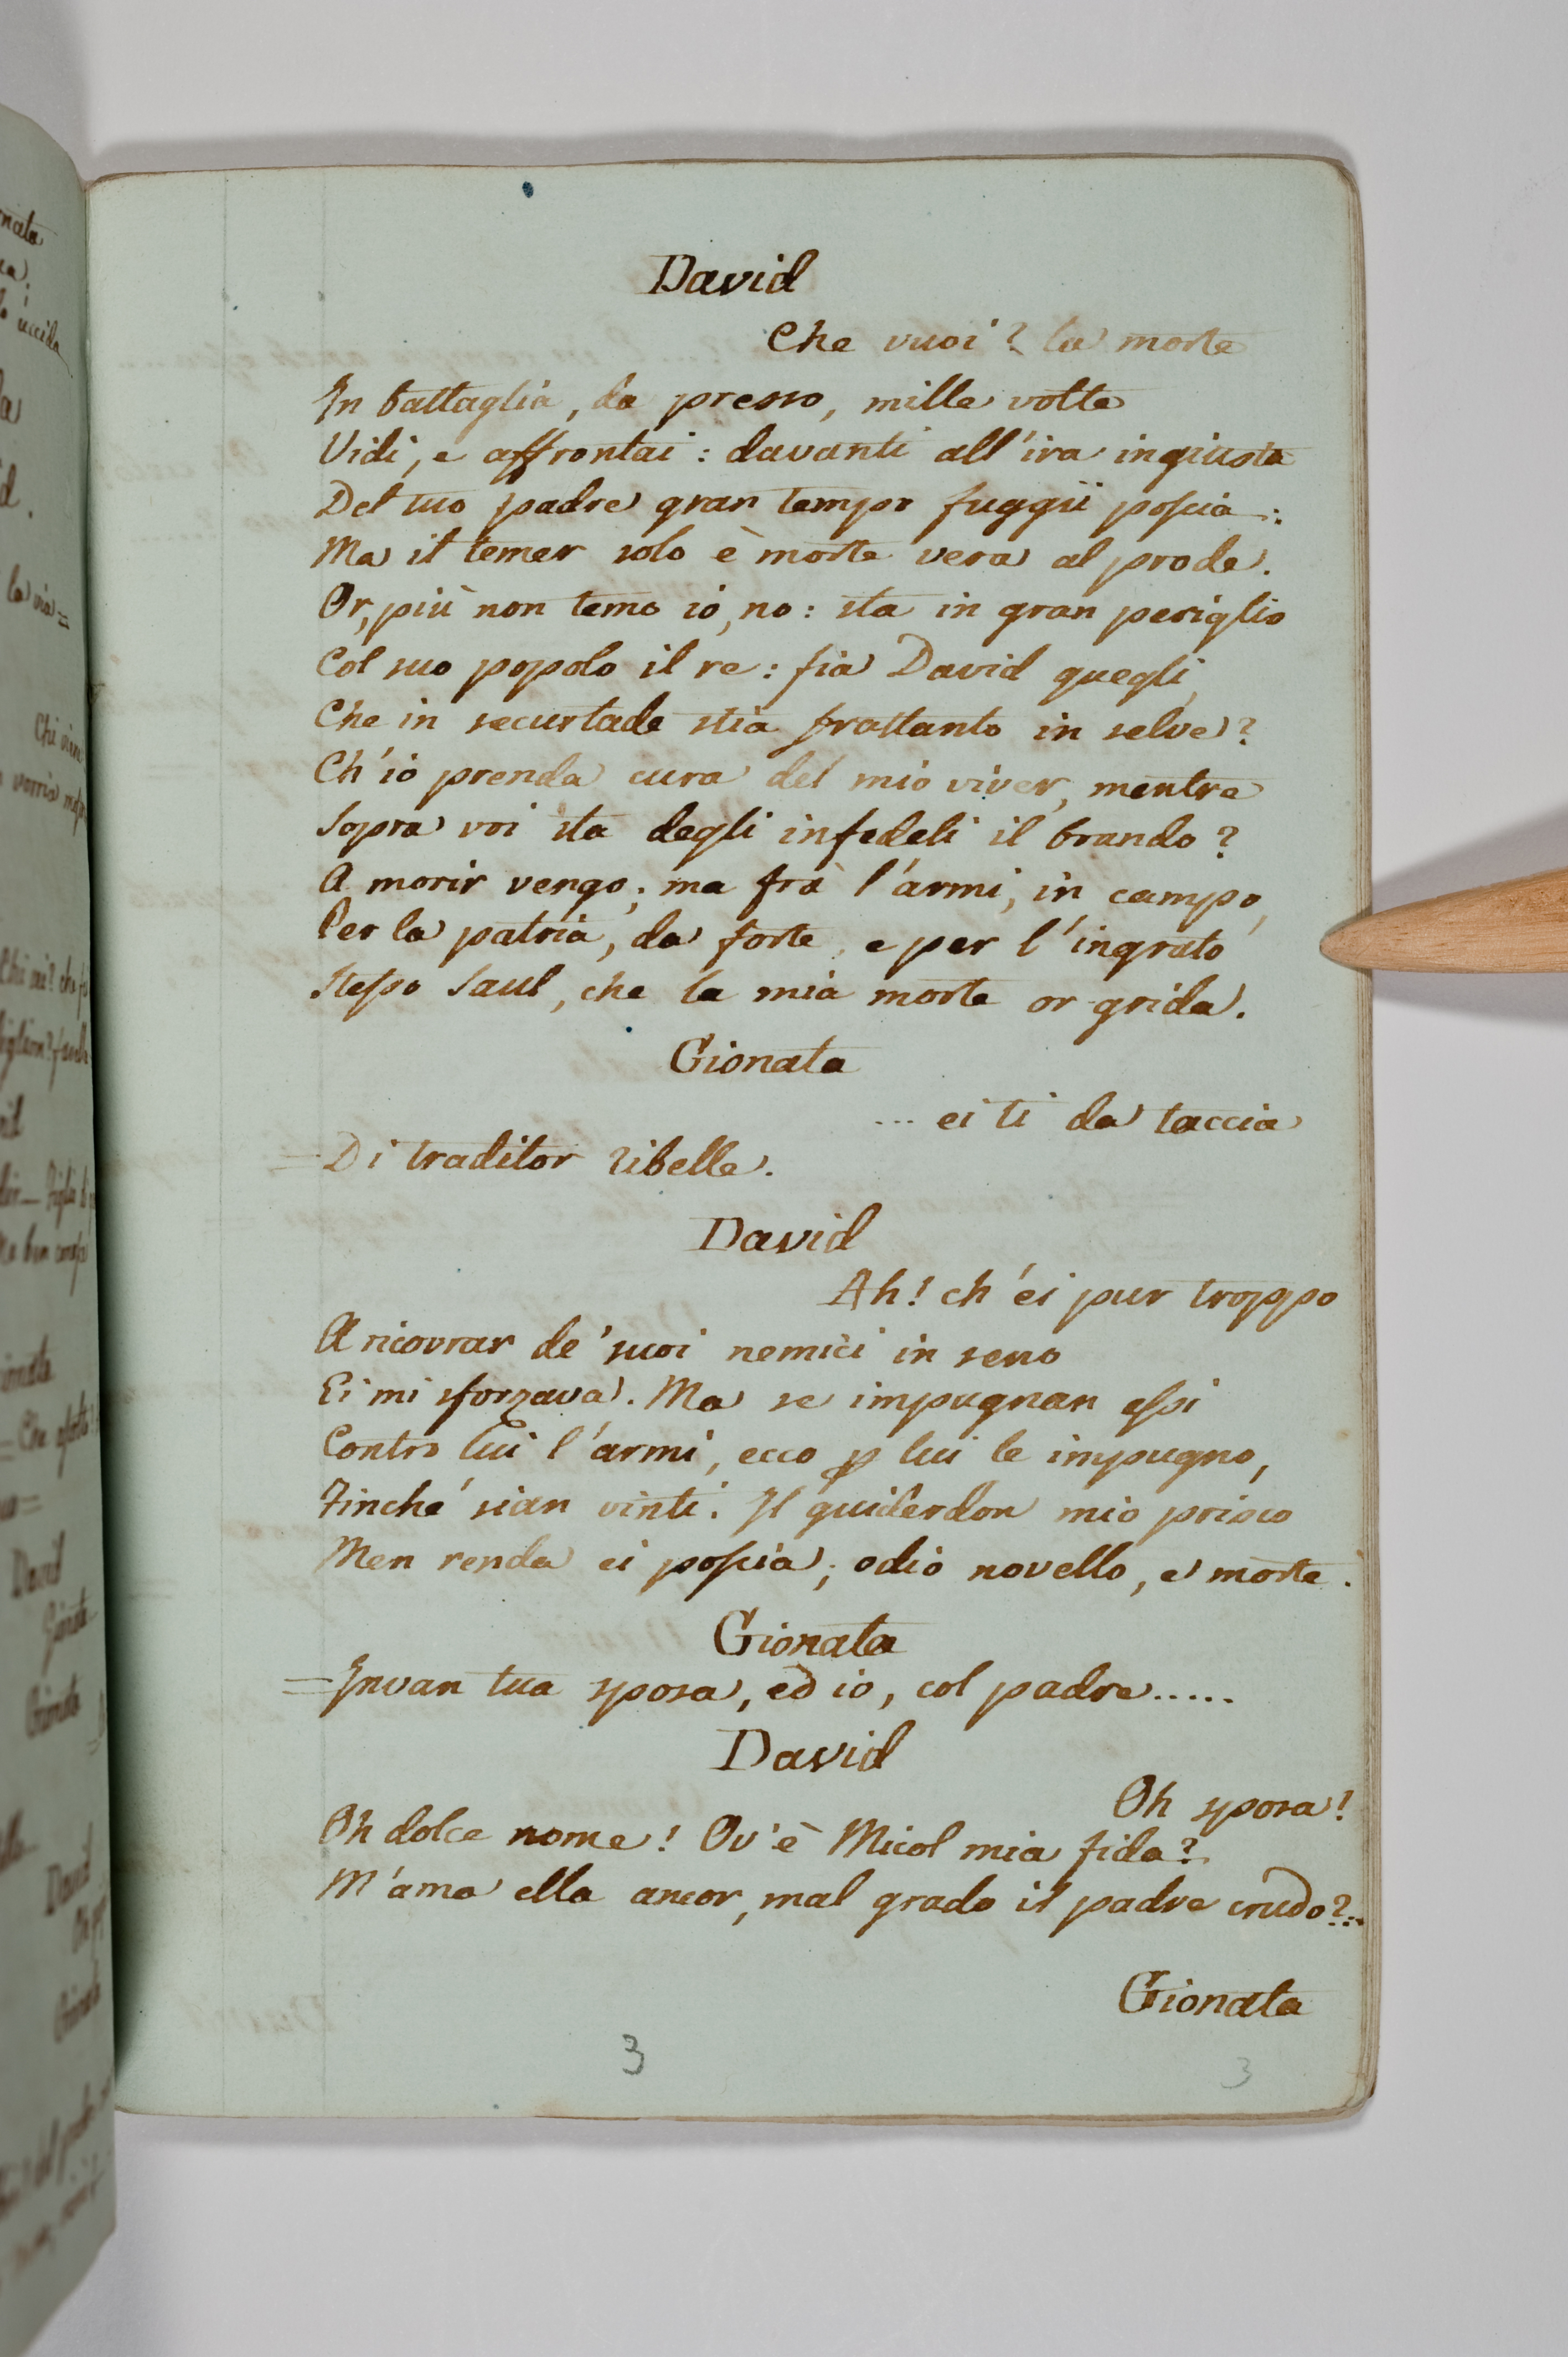 David
Che vuoi? la morte
In battaglia, da presso, mille volte
Vidi, e affrontai: davanti all'ira ingiusta
Del tuo padre gran tempo fuggii poscia:
Ma il temer solo è morte vera al prode.
Or, più non temo io, no: sta in gran periglio
Col suo popolo il re: fia David quegli,
Che in securtade stia frattanto in selve?
Ch'io prenda cura del mio viver, mentre
Sopra voi sta degli infedeli il brando?
A morir vengo; ma fra l'armi, in campo,
Per la patria, da forte, e per l'ingrato
Stesso Saul, che la mia morte or grida.
Gionata
... ei ti da taccia
=Di traditor ribelle.
David
Ah! ch'ei pur troppo
A ricovrar de' suoi nemici in seno
Ei mi sforzava. Ma se impugnan essi
Contro lui l'armi, ecco p lui le impugno,
Finché sian vinti. Il guiderdon mio prisco
Men renda ei poscia; odio novello, e morte.
Gionata
=Invan tua sposa, ed io, col padre.....
David
Oh sposa!
Oh dolce nome! Ov'è Micol mia fida?
M'ama ella ancor, mal grado il padre crudo?..
Gionata
3
3